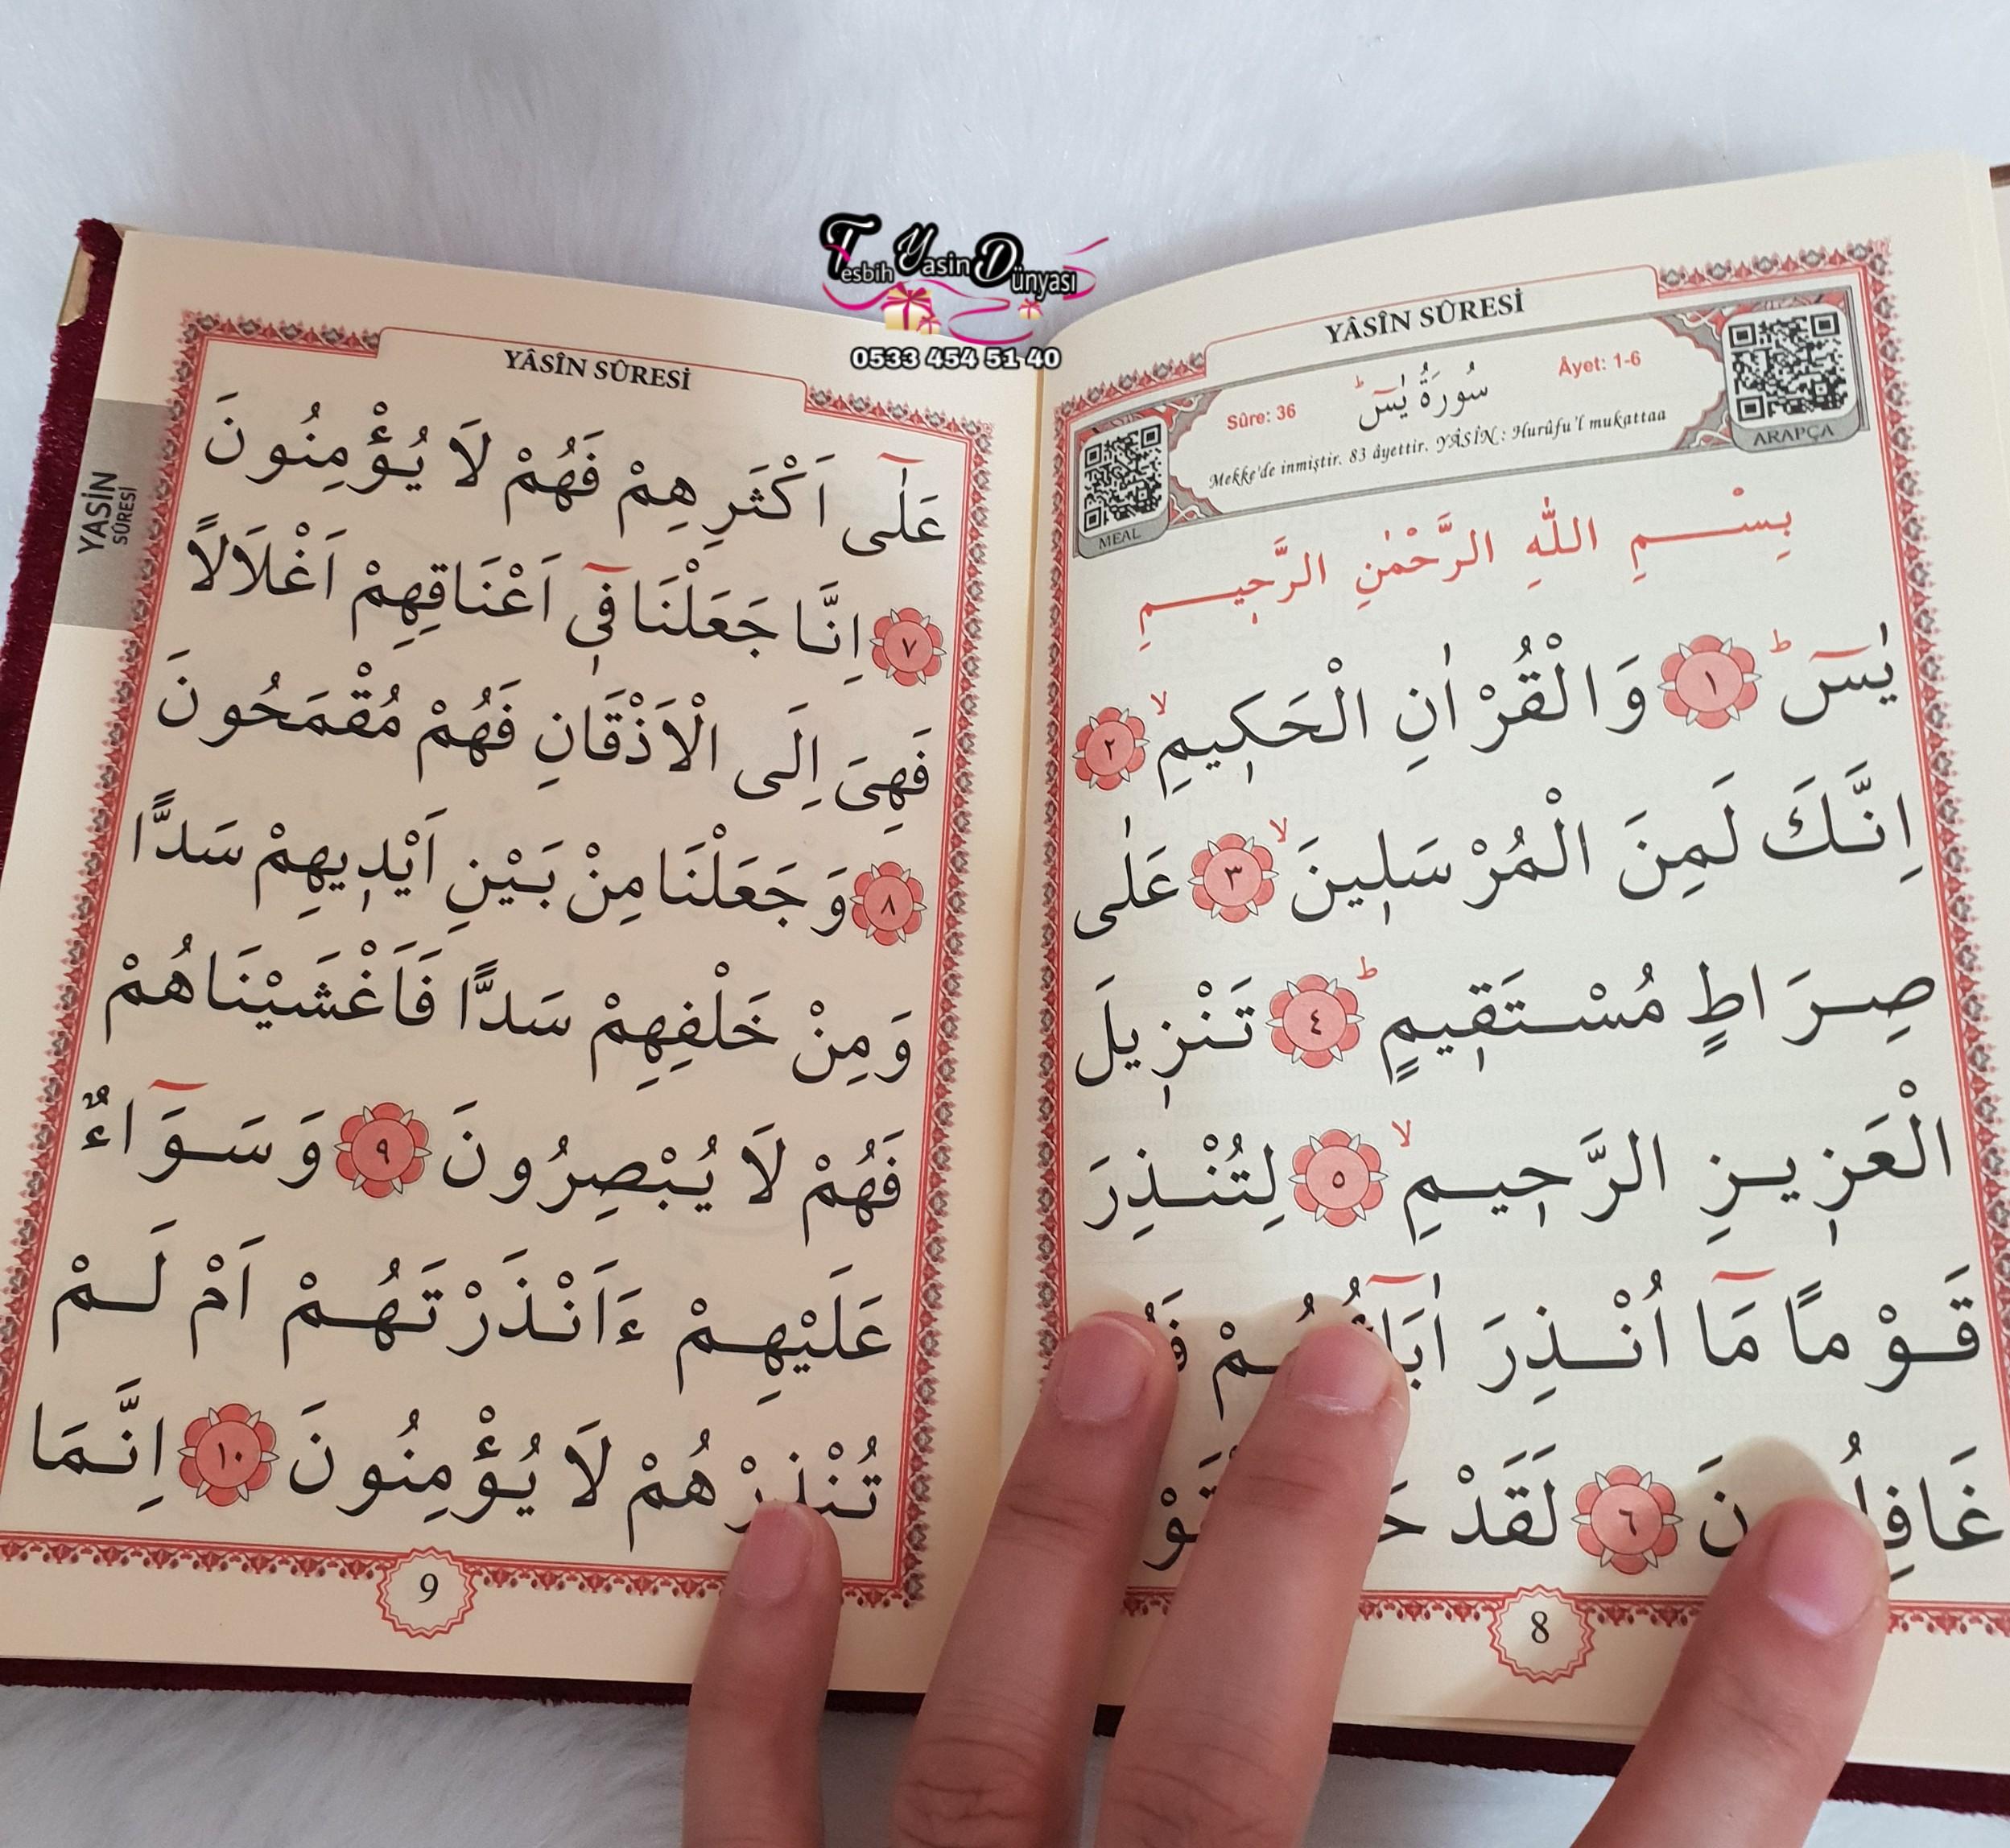 Tesbih Yasin Dünyası
0533 454 51 40
YÂSÎN SÛRESİ
Sûre: 36
سُورَةُ يٰسٓ ۜ
Âyet: 1-6
Mekke'de inmiştir. 83 âyettir. YÂSÎN : Hurûfu'l mukattaa
MEAL
ARAPÇA
بِسْـــمِ اللّٰهِ الرَّحْمٰنِ الرَّح۪يـــمِ
يٰسٓ ۜ ﴿١﴾ وَالْقُرْاٰنِ الْحَك۪يمِۙ ﴿٢﴾
اِنَّكَ لَمِنَ الْمُرْسَل۪ينَۙ ﴿٣﴾ عَلٰى
صِرَاطٍ مُسْتَق۪يمٍۜ ﴿٤﴾ تَنْز۪يلَ
الْعَز۪يزِ الرَّح۪يمِۙ ﴿٥﴾ لِتُنْذِرَ
قَوْمًا مَٓا اُنْذِرَ
﴿٦﴾ لَقَدْ
8
YÂSÎN SÛRESİ
YASİN SÛRESİ
عَلٰٓى اَكْثَرِهِمْ فَهُمْ لَا يُؤْمِنُونَ
﴿٧﴾ اِنَّا جَعَلْنَا ف۪ٓي اَعْنَاقِهِمْ اَغْلَالًا
فَهِيَ اِلَى الْاَذْقَانِ فَهُمْ مُقْمَحُونَ
﴿٨﴾ وَجَعَلْنَا مِنْ بَيْنِ اَيْد۪يهِمْ سَدًّا
وَمِنْ خَلْفِهِمْ سَدًّا فَاَغْشَيْنَاهُمْ
فَهُمْ لَا يُبْصِرُونَ ﴿٩﴾ وَسَوَٓاءٌ
عَلَيْهِمْ ءَاَنْذَرْتَهُمْ اَمْ لَمْ
تُنْذِرْهُمْ لَا يُؤْمِنُونَ ﴿١٠﴾ اِنَّمَا
9